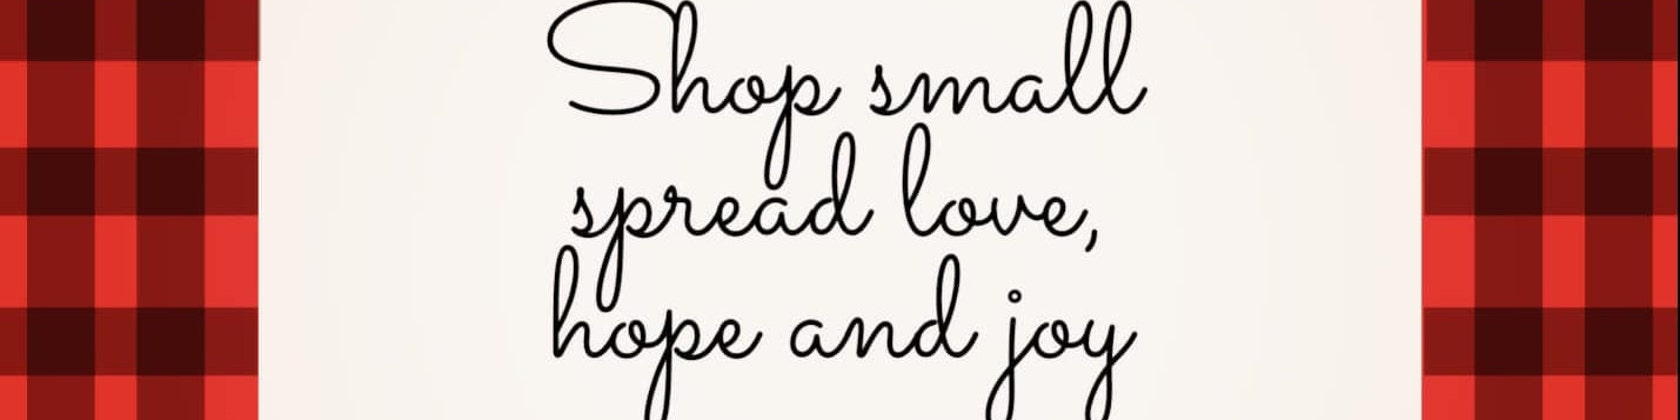 Shop small
spread love,
hope and joy